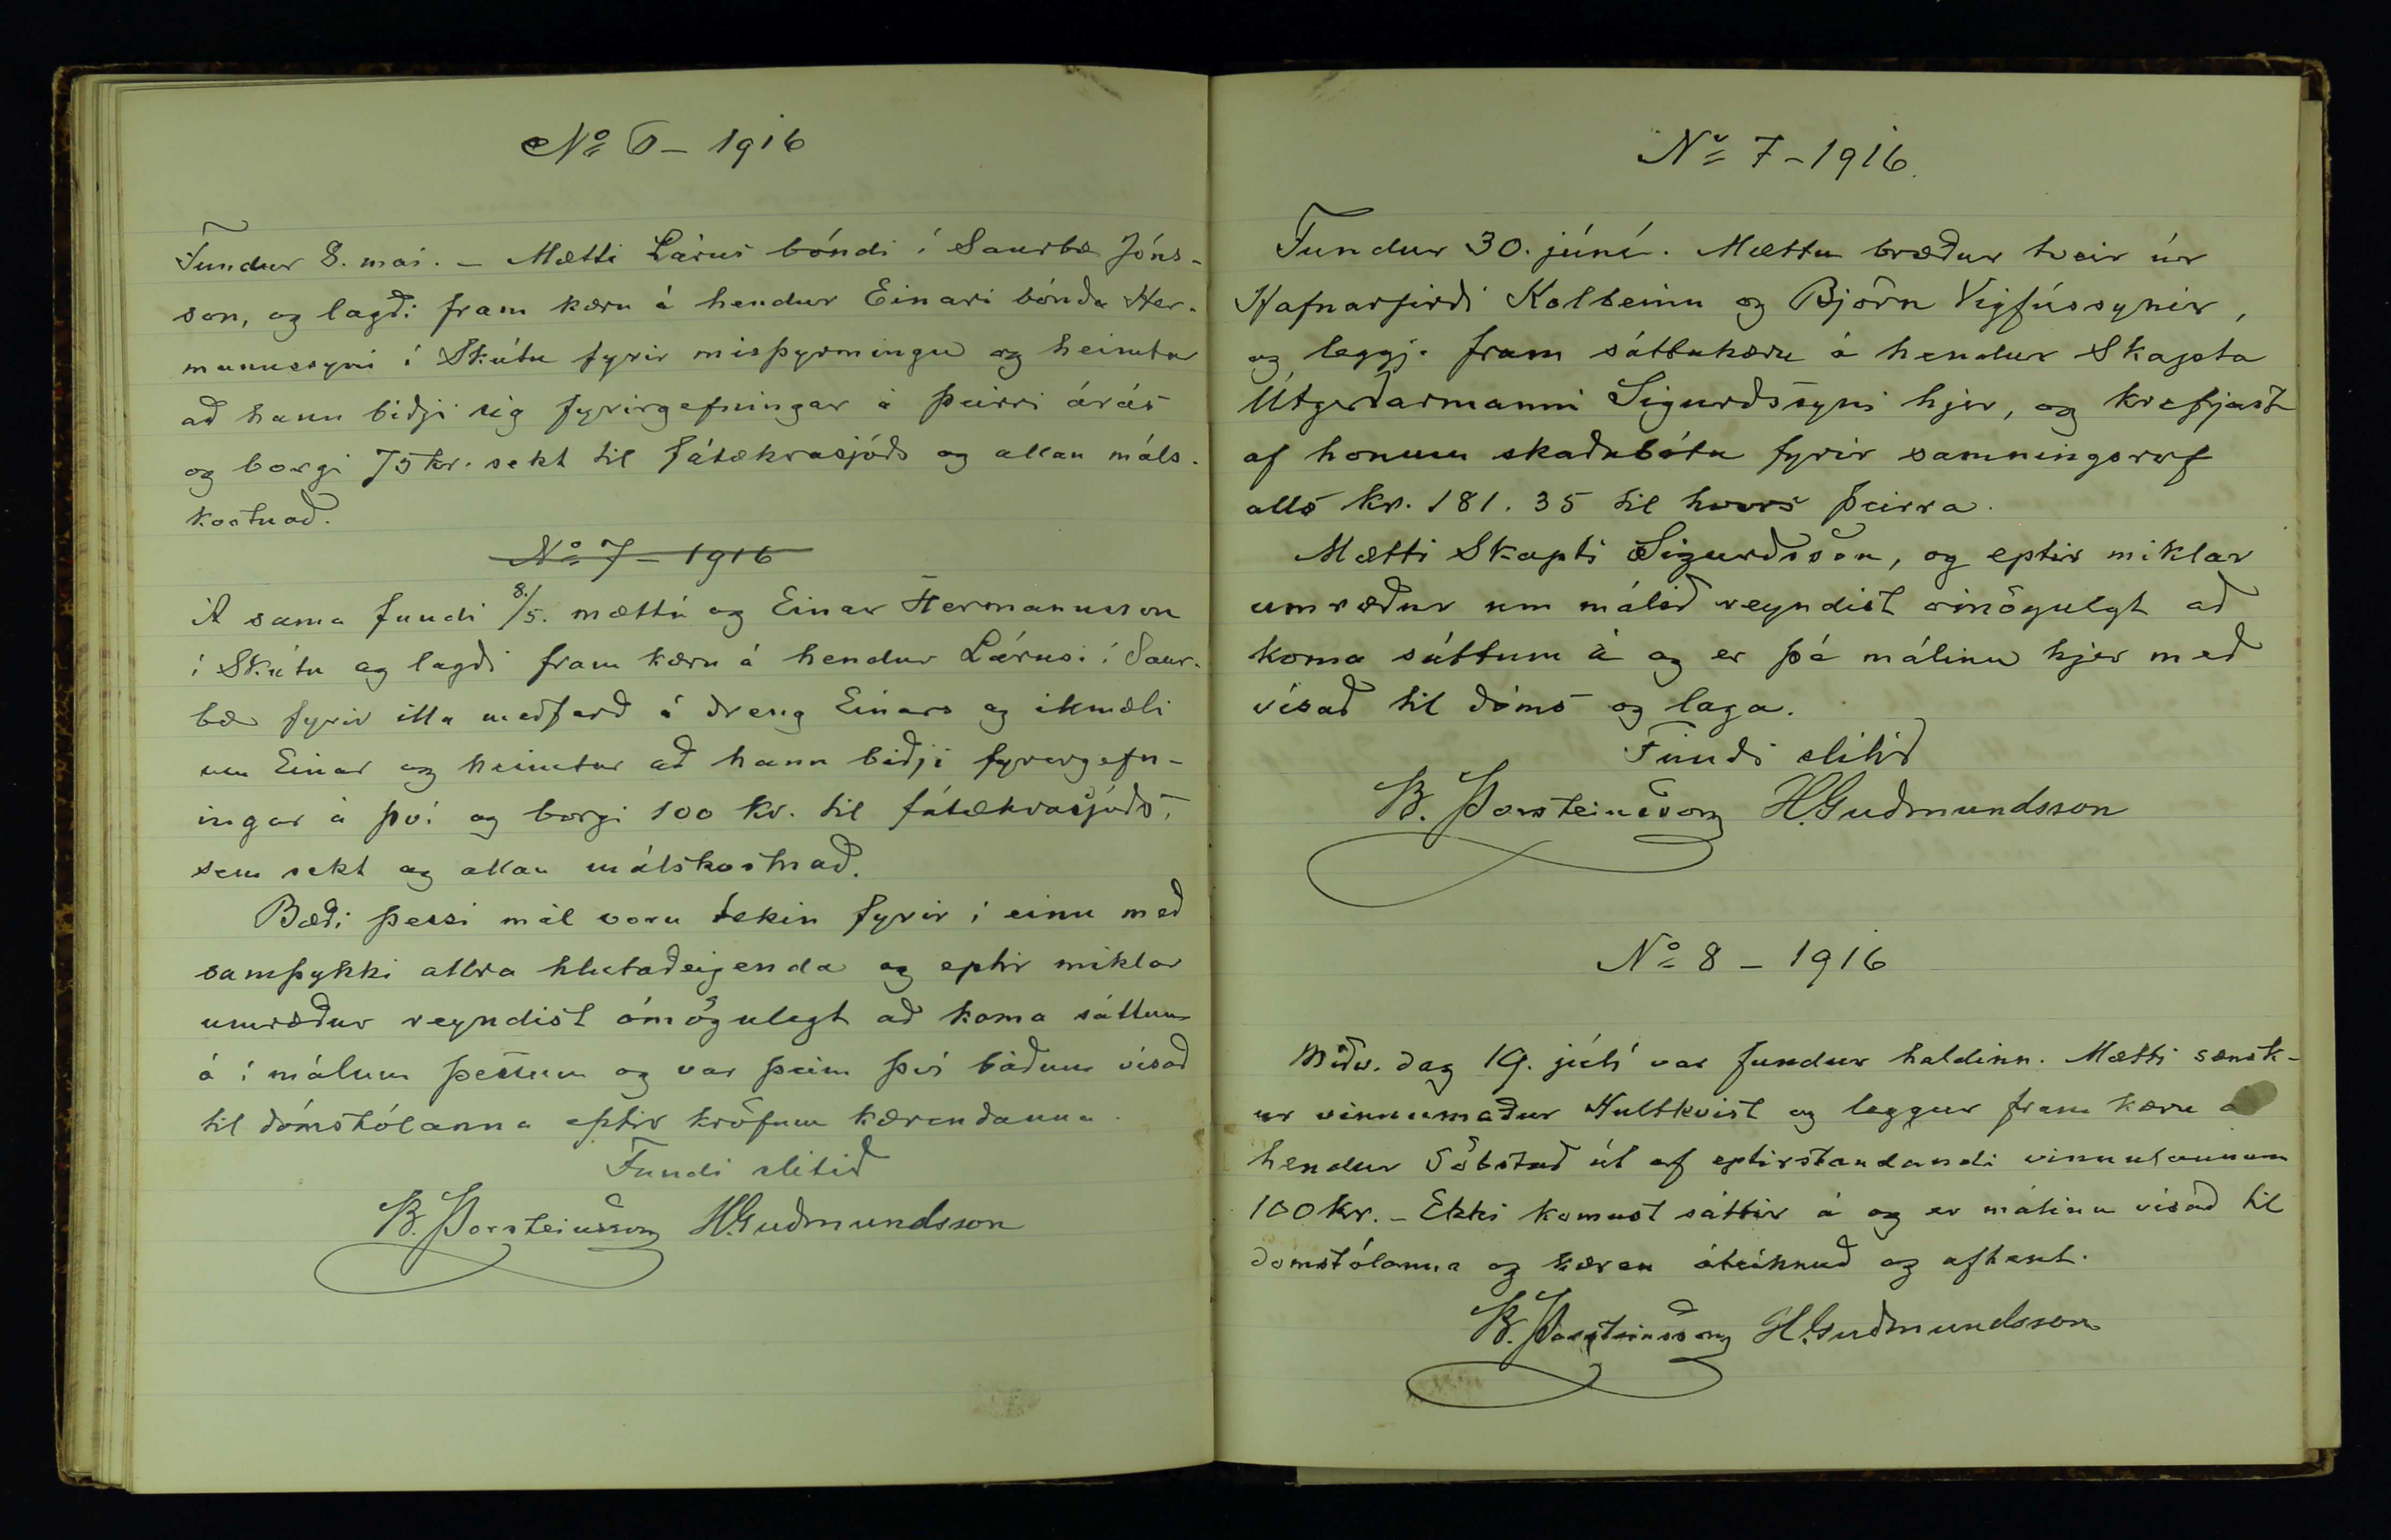 No 6 – 1916
Fundur 8. mai. – Mætti Lárus bóndi í Saurbæ Jóns-
son, og lagði fram kæru á hendur Einari bónda Her-
mannssyni í Skútu fyrir misþyrmingu og heimtar
að hann biðji sig fyrirgefningar á þeirri árás
og borgi 75 kr. sekt til fátækrasjóðs og allan máls-
kostnað.
No 7 – 1916
Á sama fundi 8./5. mætti og Einar Hermannsson
í Skútu og lagði fram kæru á hendur Lárusi í Saur-
bæ fyrir illa meðferð á dreng Einars og illmæli
um Einar og heimtar að hann biðji fyrirgefn-
ingar á því og borgi 100 kr. til fátækrasjóðs,
sem sekt og allan málskostnað.
Bæði þessi mál voru tekin fyrir í einu með
samþykki allra hlutaðeigenda og eptir miklar
umræður reyndist ómögulegt að koma sáttum
á í málum þessum og var þeim því báðum vísað
til dómstólanna eptir kröfum kærendanna.
Fundi slitið
B. Þorsteinsson H. Guðmundsson
No 7 – 1916.
Fundur 30. júní. Mættu bræður tveir úr
Hafnarfirði Kolbeinn og Björn Vigfússynir,
og leggja fram sáttakæru á hendur Skapta
Útgerðarmanni Sigurðssyni hjer, og krefjast
af honum skaðabóta fyrir samningsrof
alls kr. 181.35 til hvors þeirra.
Mætti Skapti Sigurðsson, og eptir miklar
umræður um málið reyndist ómögulgt að
koma sáttum á og er þá málinu hjer með
vísað til dóms og laga.
Fundi slitið
B. Þorsteinsson H. Guðmundsson
No 8 – 1916
Miðv. dag 19. júlí var fundur haldinn. Mætti sænsk-
ur vinnumaður Hultkvist og leggur fram kæru á
hendur Söbstad út af eptirstandandi vinnulaunum
100 kr. – Ekki komust sáttir á og er málinu vísað til
domstólanna og kæran áteiknuð og afhent.
B. Þorsteinsson H. Guðmundsson